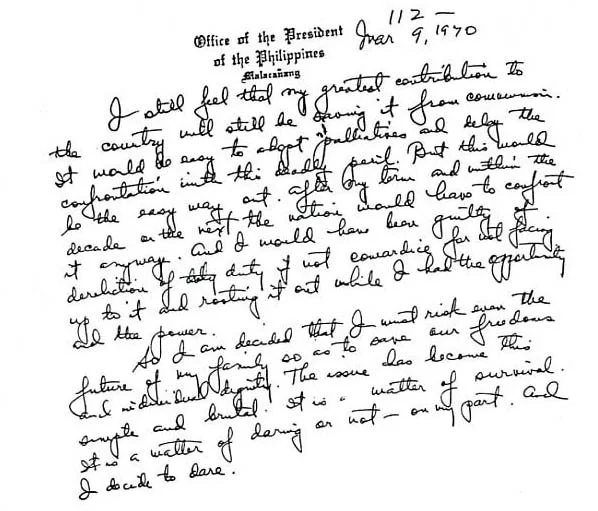 112 —
Office of the President
of the Philippines
Malacañang
Mar 9, 1970
I still feel that my greatest contribution to
the country will still be saving it from communism.
It would be easy to adopt palliatives and delay the
confrontation with this deadly peril. But this would
be the easy way out. After my term and within the
decade or the next the nation would have to confront
it anyway. And I would have been guilty of
dereliction of duty if not cowardice for not facing
up to it and rooting it out while I had the opportunity
and the power.
So I am decided that I must risk even the
future of my family so as to save our freedoms
and individual dignity. The issue has become this
simple and brutal. It is a matter of survival.
It is a matter of daring or not — on my part. And
I decide to dare.